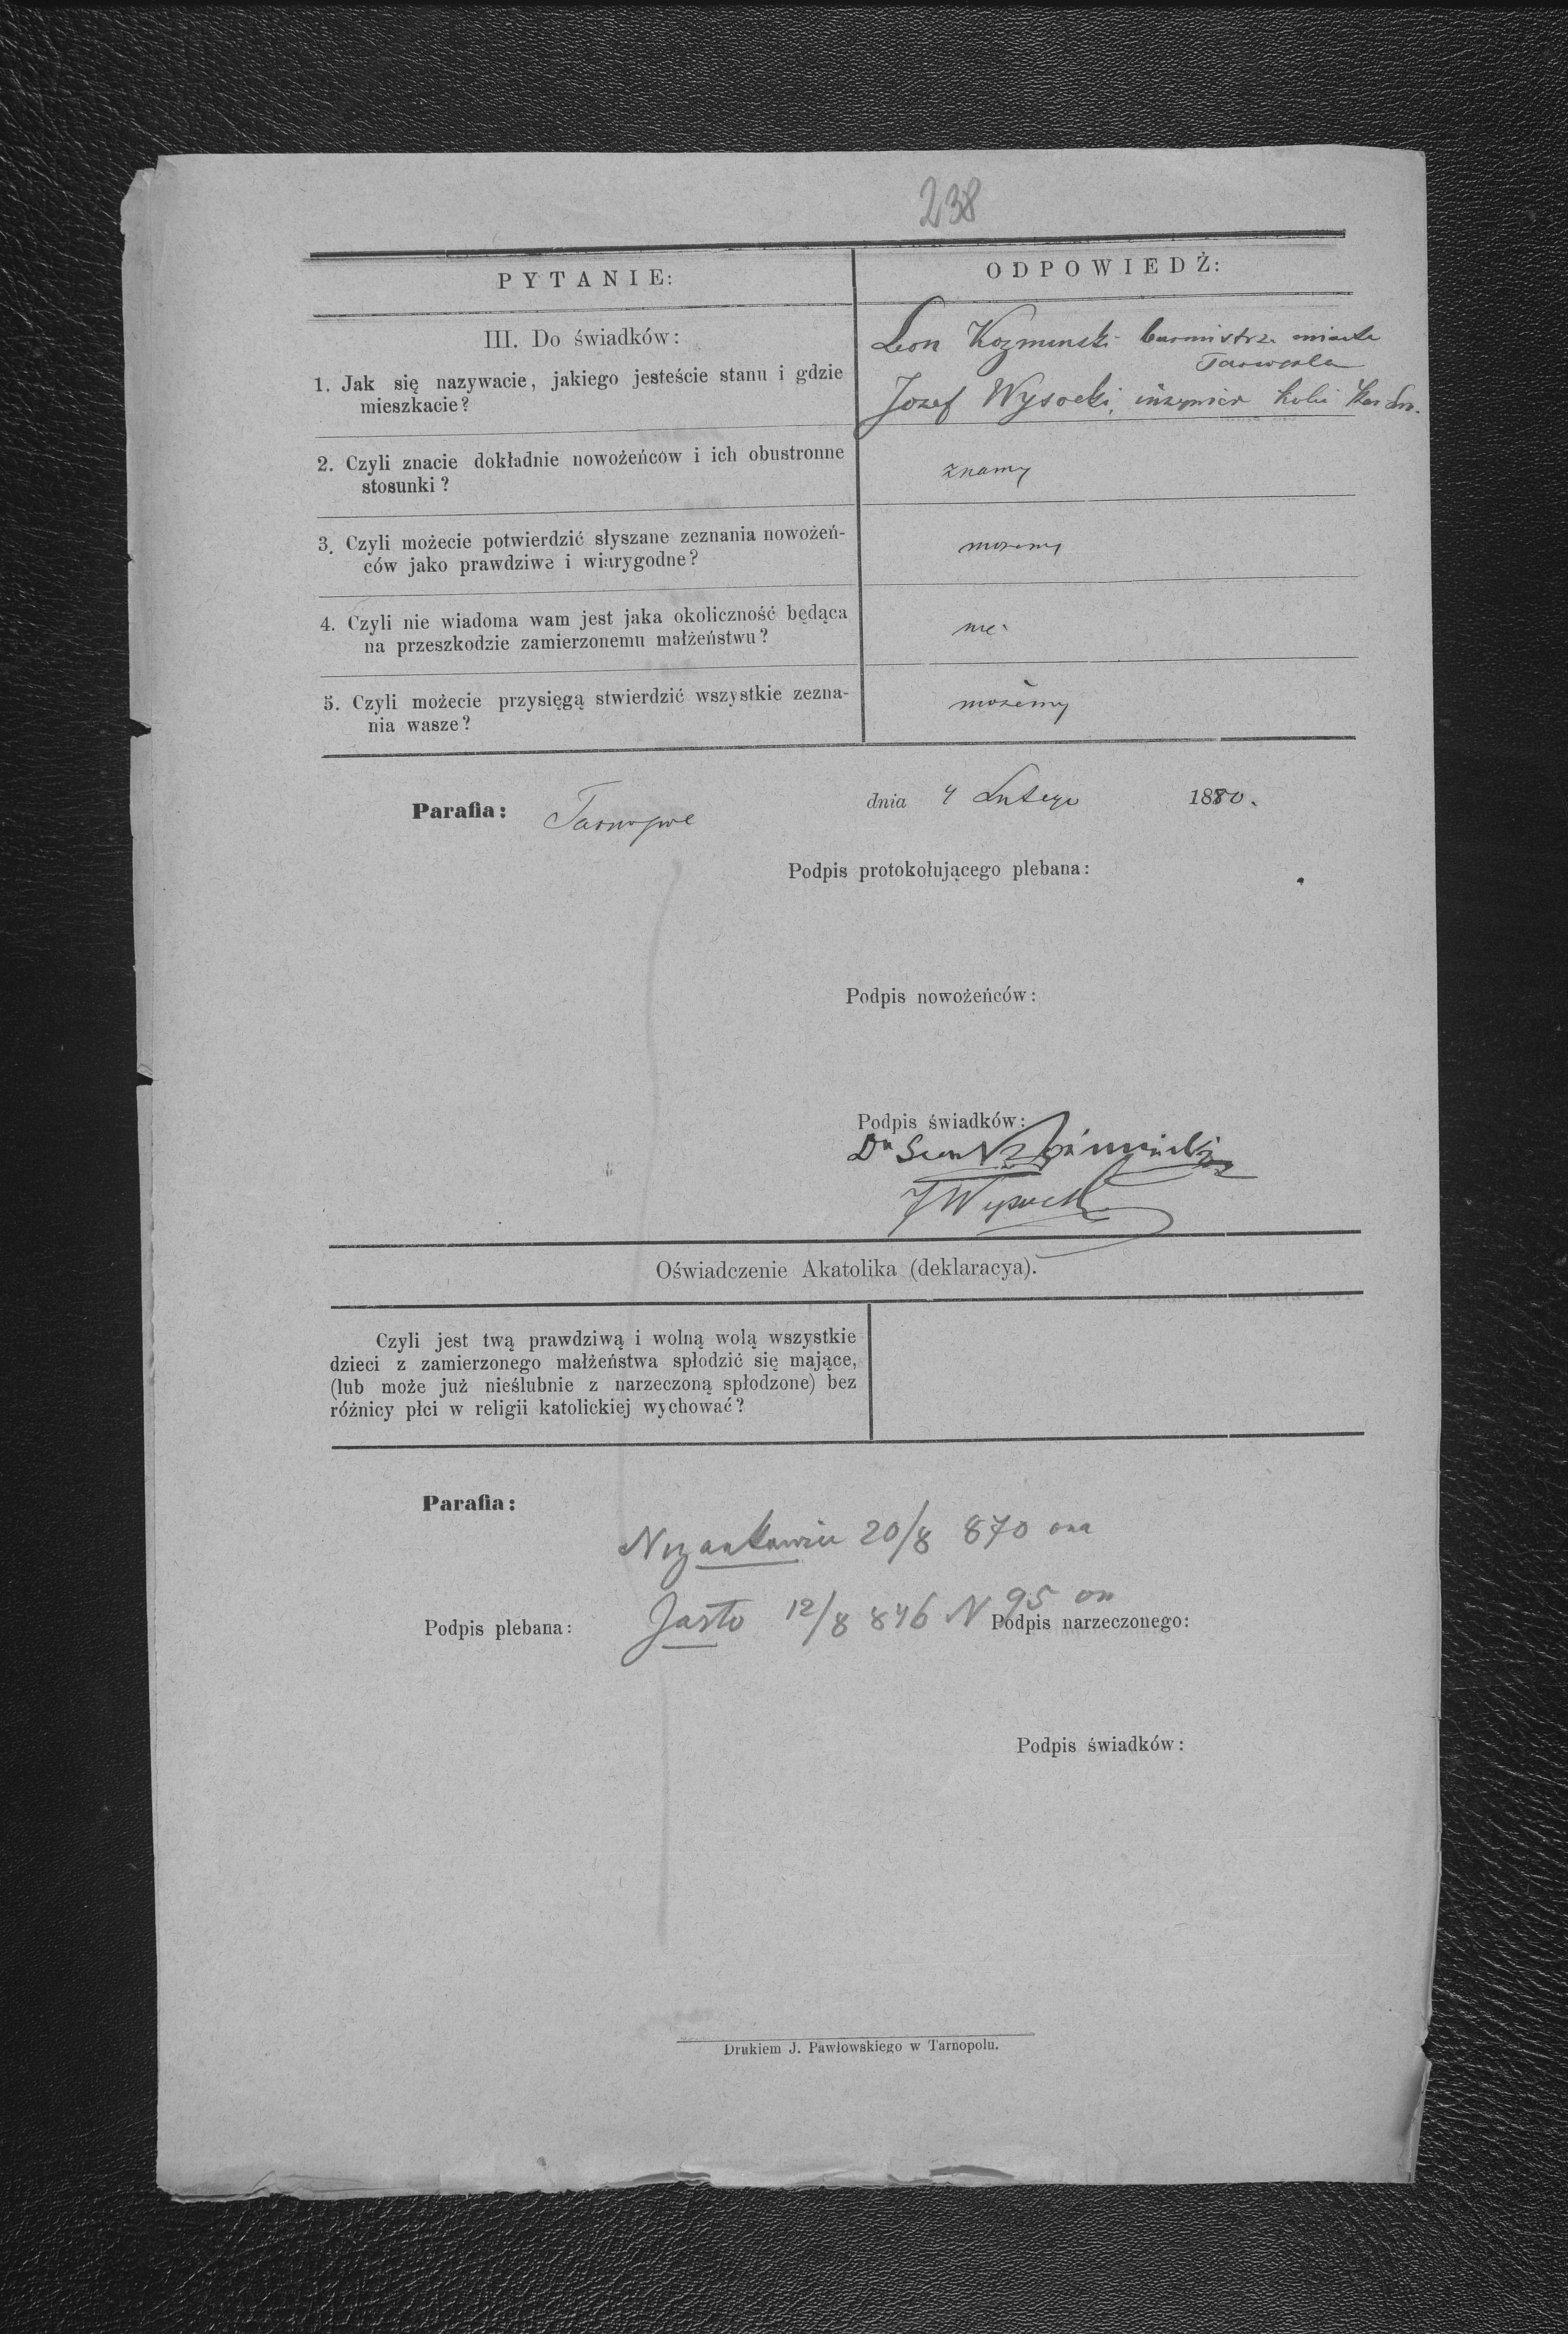 238
PYTANIE:
ODPOWIEDŹ:
III. Do świadków:
1. Jak się nazywacie, jakiego jesteście stanu i gdzie
mieszkacie?
Leon Kozminski burmistrz miasta
Józef Wysocki, inżynier kolei
2. Czyli znacie dokładnie nowożeńców i ich obustronne
stosunki?
znamy
3. Czyli możecie potwierdzić słyszane zeznania nowożeń-
ców jako prawdziwe i wiarygodne?
możemy
4. Czyli nie wiadoma wam jest jaka okoliczność będąca
na przeszkodzie zamierzonemu małżeństwu?
nie
5. Czyli możecie przysięgą stwierdzić wszystkie zezna-
nia wasze?
możemy
Parafia: Tarnopol
dnia 4 Lutego 1880.
Podpis protokołującego plebana:
Podpis nowożeńców:
Podpis świadków:
Dr
JWysocki
Oświadczenie Akatolika (deklaracya).
Czyli jest twą prawdziwą i wolną wolą wszystkie
dzieci z zamierzonego małżeństwa spłodzić się mające,
(lub może już nieślubnie z narzeczoną spłodzone) bez
różnicy płci w religii katolickiej wychować?
Parafia:
20/8 870 ona
Jasło 12/8 846 N 95 on
Podpis plebana:
Podpis narzeczonego:
Podpis świadków:
Drukiem J. Pawłowskiego w Tarnopolu.